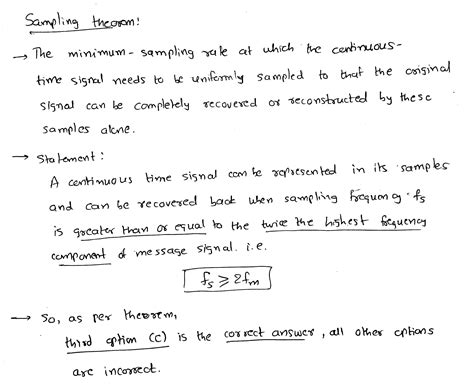 Sampling theorem:
→ The minimum-sampling rate at which the continuous-
time signal needs to be uniformly sampled to that the original
signal can be completely recovered or reconstructed by these
samples alone.
→ Statement:
A continuous time signal can be represented in its samples
and can be recovered back when sampling frequency fs
is greater than or equal to the twice the highest frequency
component of message signal. i.e.
fs ≥ 2fm
→ So, as per theorem,
third option (c) is the correct answer, all other options
are incorrect.